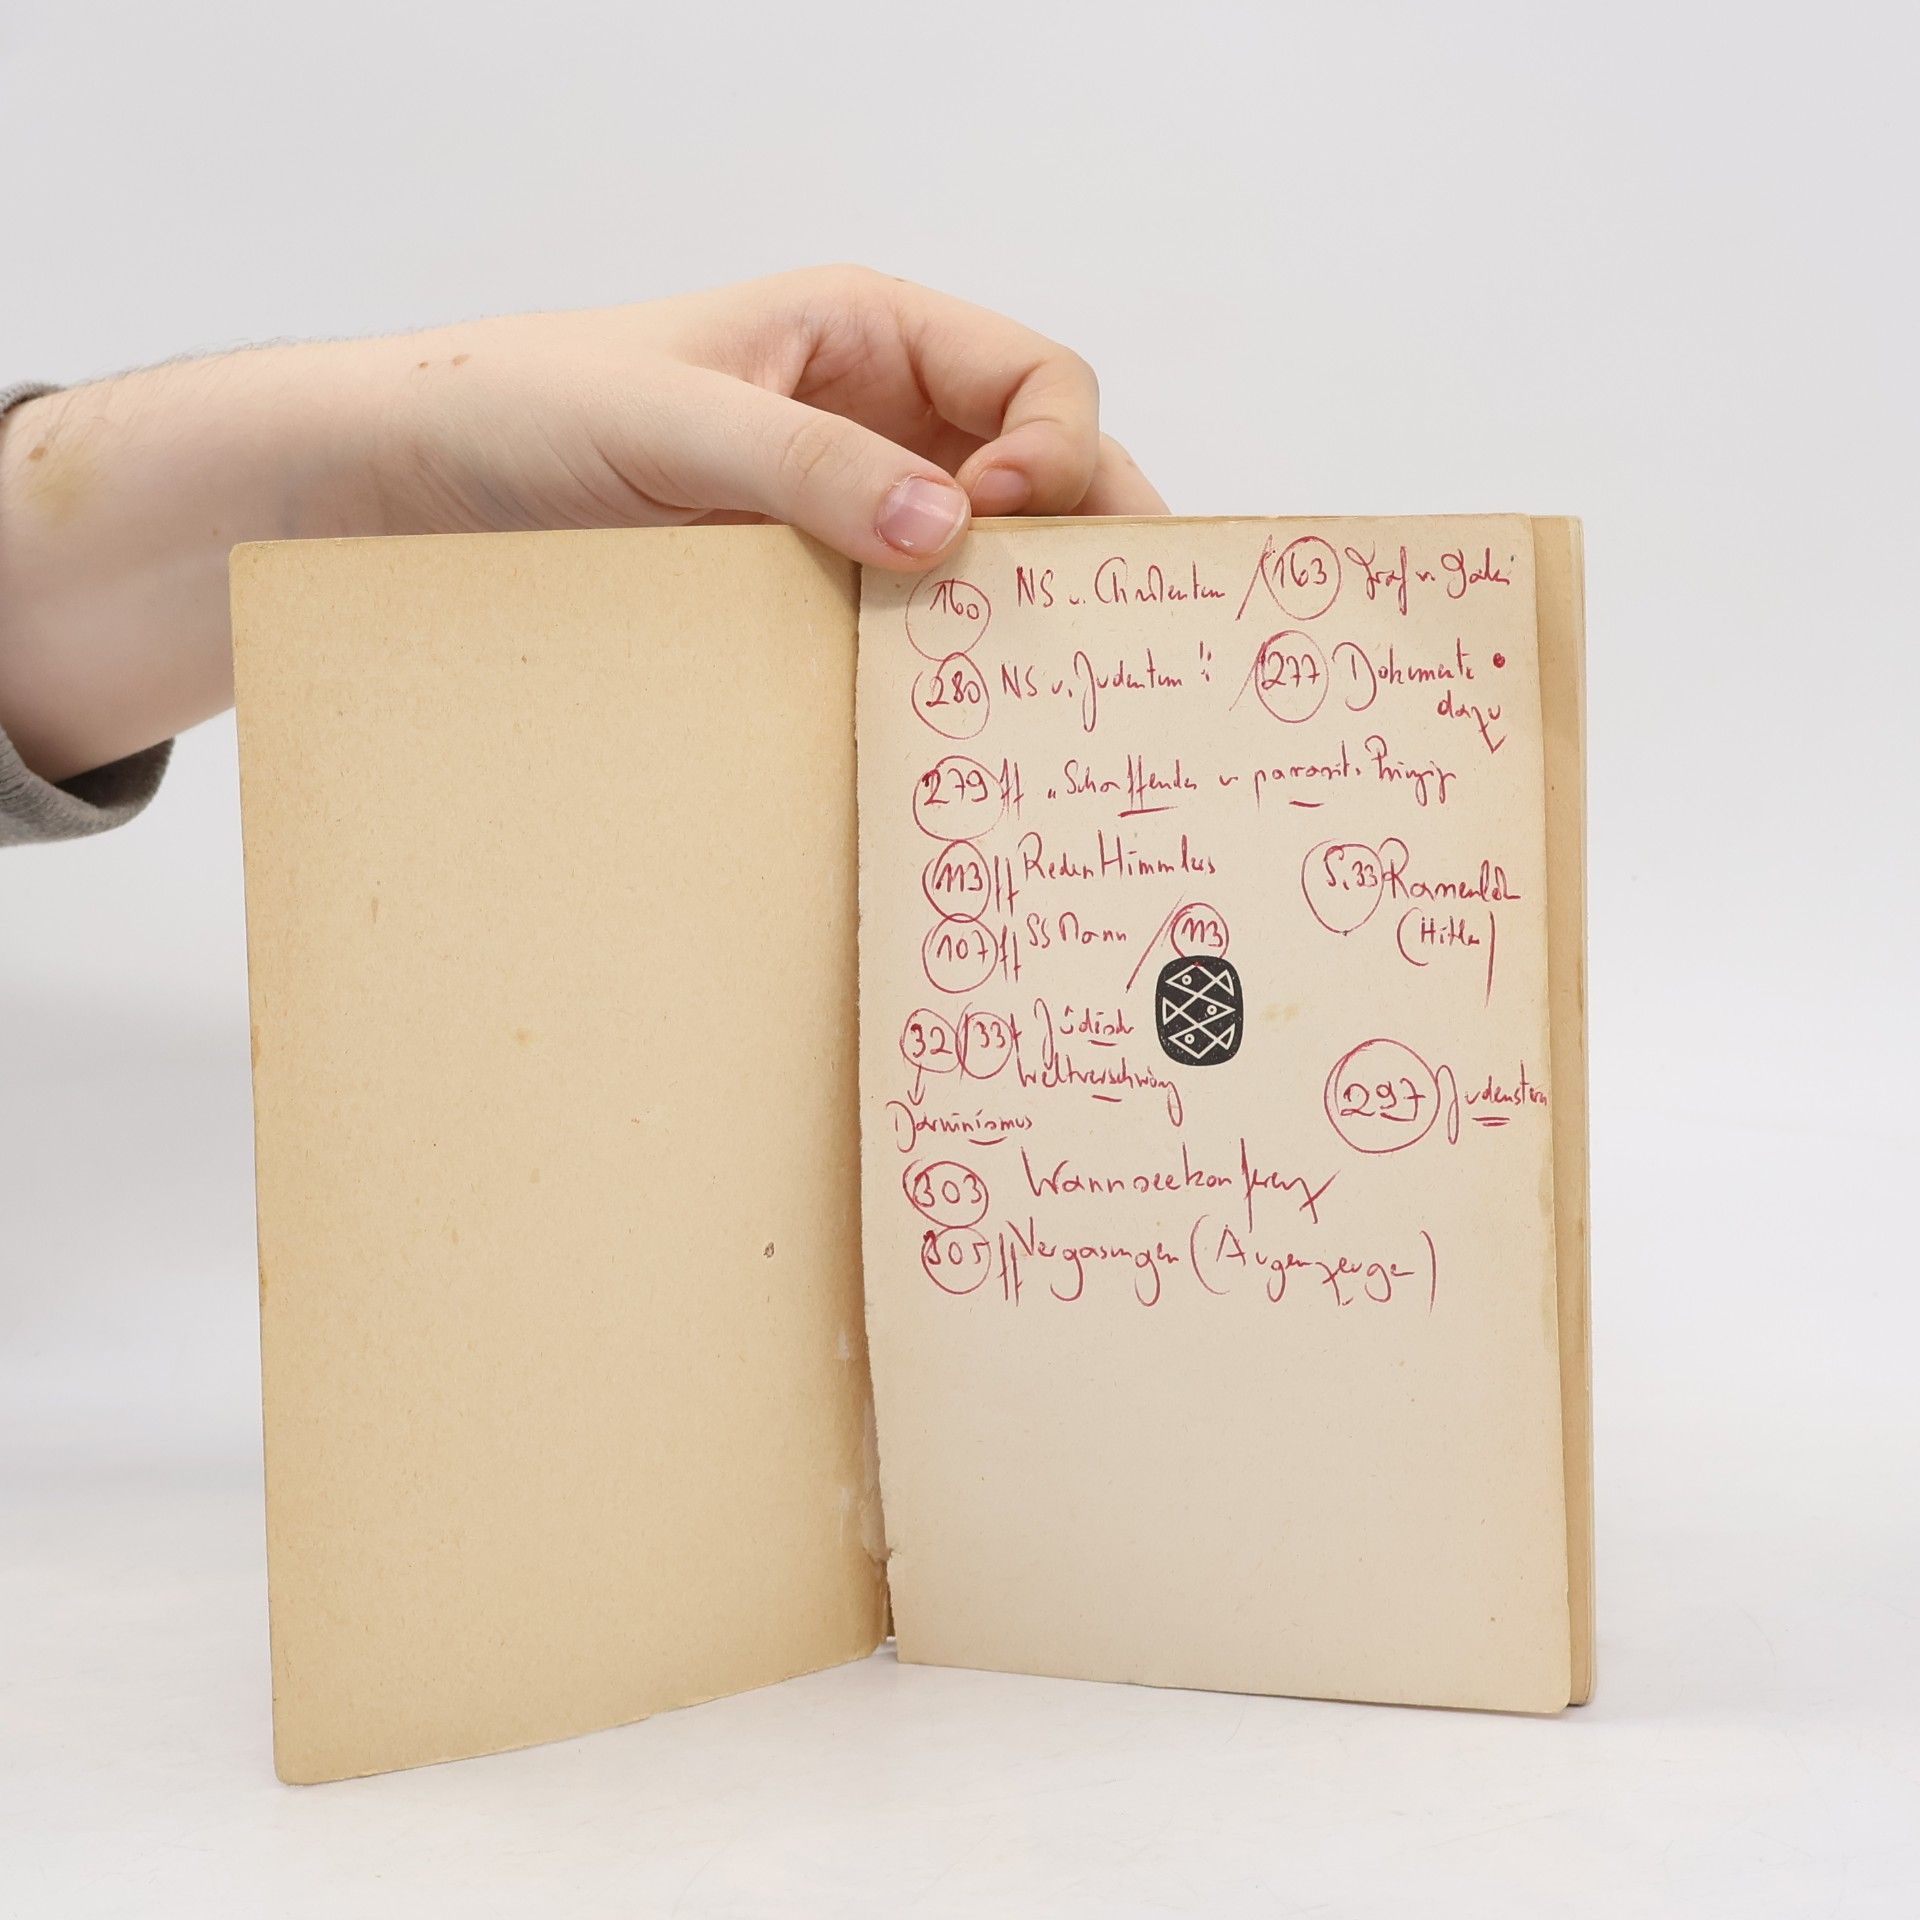 160 NS u. Christentum / 163 Graf v. Galen
280 NS u. Judentum !! / 277 Dokumente
dazu
279 ff „Schaffendes u parasit. Prinzip
113 ff Reden Himmlers
S. 33 Rassenlehre
(Hitler)
107 ff SS Mann / 113
32 / 33 f Jüdisch
Weltverschwörg
Darwinismus
297 Judenstern
303 Wannseekonferenz
305 ff Vergasungen (Augenzeuge)